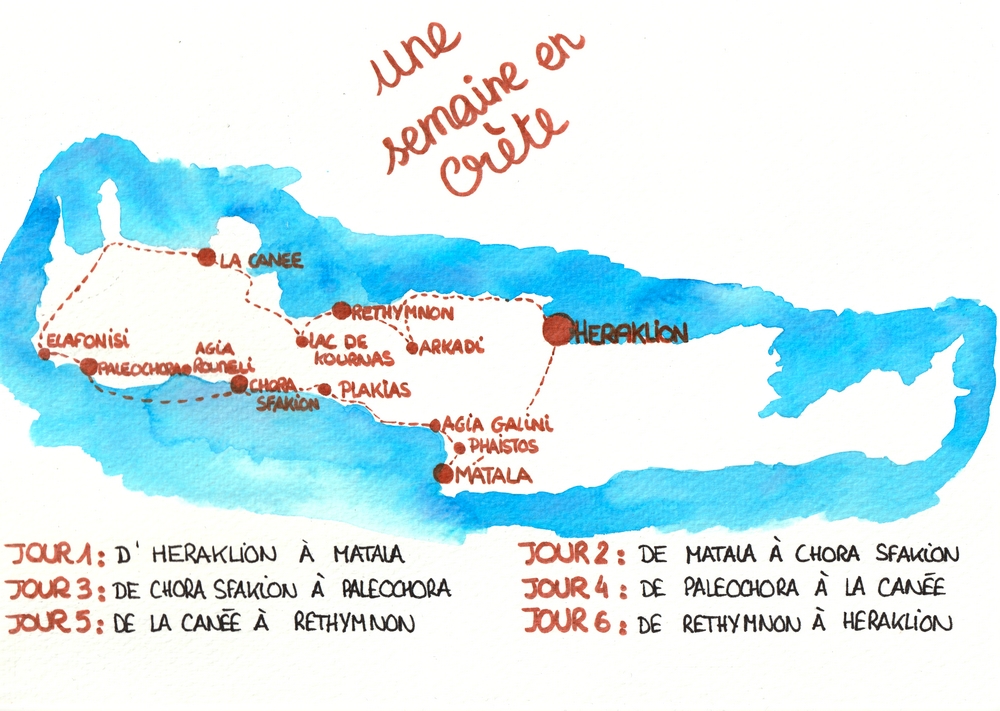 une
semaine en
crète
LA CANEE
RETHYMNON
HERAKLION
ELAFONISI
LAC DE
KOURNAS
ARKADI
AGIA
ROUMELI
PALEOCHORA
CHORA
SFAKION
PLAKIAS
AGIA GALINI
PHAISTOS
MATALA
JOUR 1 : D' HERAKLION À MATALA
JOUR 2 : DE MATALA À CHORA SFAKION
JOUR 3 : DE CHORA SFAKION À PALEOCHORA
JOUR 4 : DE PALEOCHORA À LA CANÉE
JOUR 5 : DE LA CANÉE À RETHYMNON
JOUR 6 : DE RETHYMNON À HERAKLION